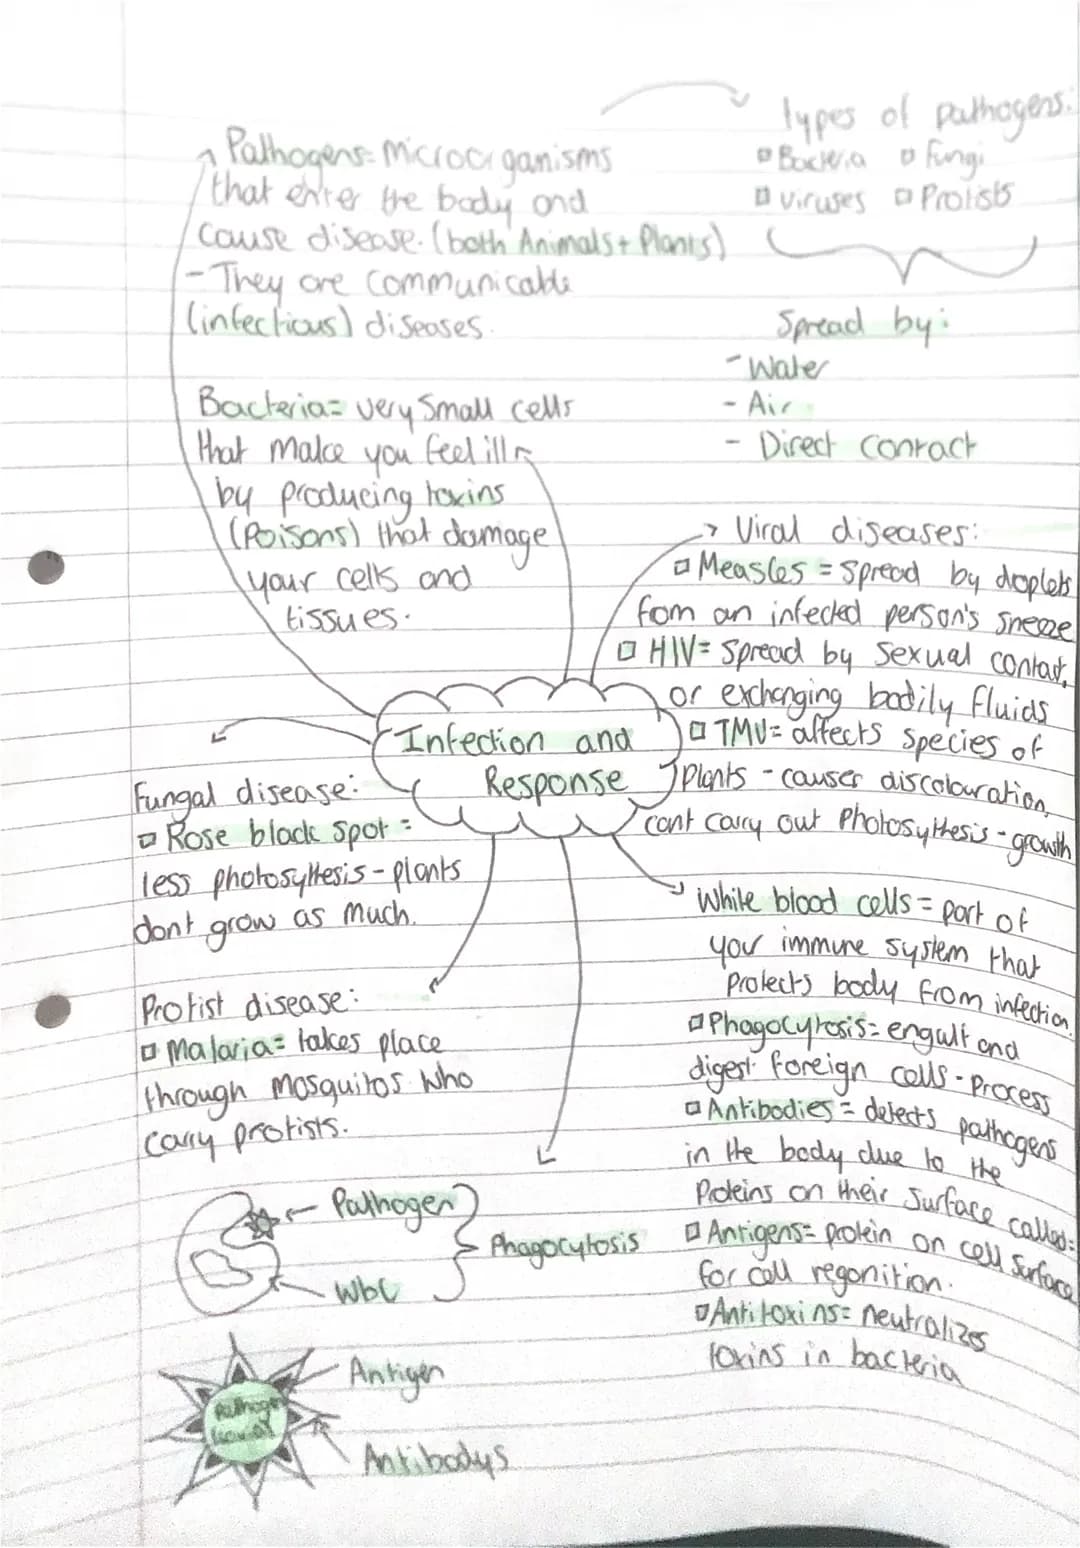 Types of pathogens:
▫ Bacteria ▫ Fungi
▫ viruses ▫ Protists
Spread by:
- Water
- Air
- Direct contact
Pathogens= Microorganisms
that enter the body and
cause disease. (both Animals + Plants)
- They are communicable
(infectious) diseases.
Bacteria= very small cells
that make you feel ill
by producing toxins
(Poisons) that damage
your cells and
tissues.
Viral diseases:
▫ Measles = spread by droplets
from an infected person's sneeze
▫ HIV= spread by sexual contact,
or exchanging bodily fluids
▫ TMV= affects species of
plants - causes discolouration,
cant carry out Photosythesis - growth
Infection and
Response
Fungal disease:
▫ Rose black spot =
less photosythesis - plants
dont grow as much.
Protist disease:
▫ Malaria= takes place
through mosquitos who
carry protists.
White blood cells = part of
your immune system that
protects body from infection.
▫ Phagocytosis= engulf and
digest foreign cells - process
▫ Antibodies = detects pathogens
in the body due to the
proteins on their surface called:
▫ Antigens= protein on cell surface
for cell regonition.
▫ Antitoxins= neutralizes
toxins in bacteria
Pathogen
WbC
Phagocytosis
Antigen
Pathogen
Antibodys